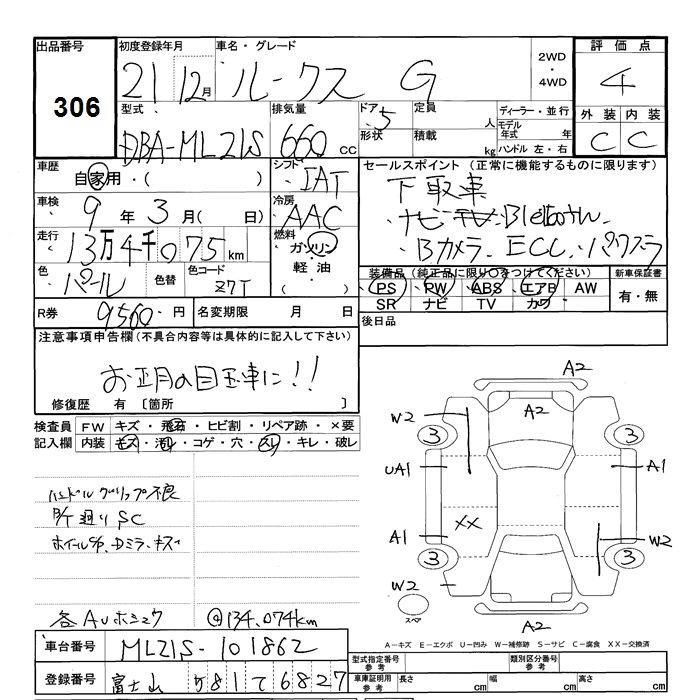 出品番号 306
初度登録年月 21 12月
車名・グレード ルークス G
2WD・4WD
評価点 4
型式 DBA-ML21S
排気量 660cc
ドア 5
形状
定員 人
積載 kg
ディーラー・並行
モデル年式 年
ハンドル 左・右
外装 内装
C C
車歴 自家用・( )
シフト IAT
車検 9年3月(日)
冷房 AAC
走行 13万4千075km
燃料 ガソリン・軽油・( )
色 パール
色替
色コード Z7T
R券 9560円
名変期限 月 日
セールスポイント(正常に機能するものに限ります)
下取車
・ナビ・TV・Bluetooth
・Bカメラ・ECC・
装備品(純正品に限り○をつけてください)
PS PW ABS エアB AW
SR ナビ TV カワ
新車保証書
有・無
後日品
注意事項申告欄(不具合内容等は具体的に記入して下さい)
お正月の目玉車に!!
修復歴 有〔箇所 〕
検査員記入欄
FW キズ・飛石・ヒビ割・リペア跡・×要
内装 キズ・汚れ・コゲ・穴・スレ・キレ・破レ
ハンドルグリップ不良
廻りSC
ホイールcap、Dミラーキズ
各AUホシュウ @134,074km
車台番号 ML21S-101862
登録番号 富士山 581 て 6827
A2
A2
W2
3 3
UA1 A1
XX
A1 W2
3 3
W2
スペア
A2
A-キズ E-エクボ U-凹み W-補修跡 S-サビ C-腐食 XX-交換済
型式指定番号 参考
類別区分番号 参考
車庫証明用 参考
長さ cm 幅 cm 高さ cm